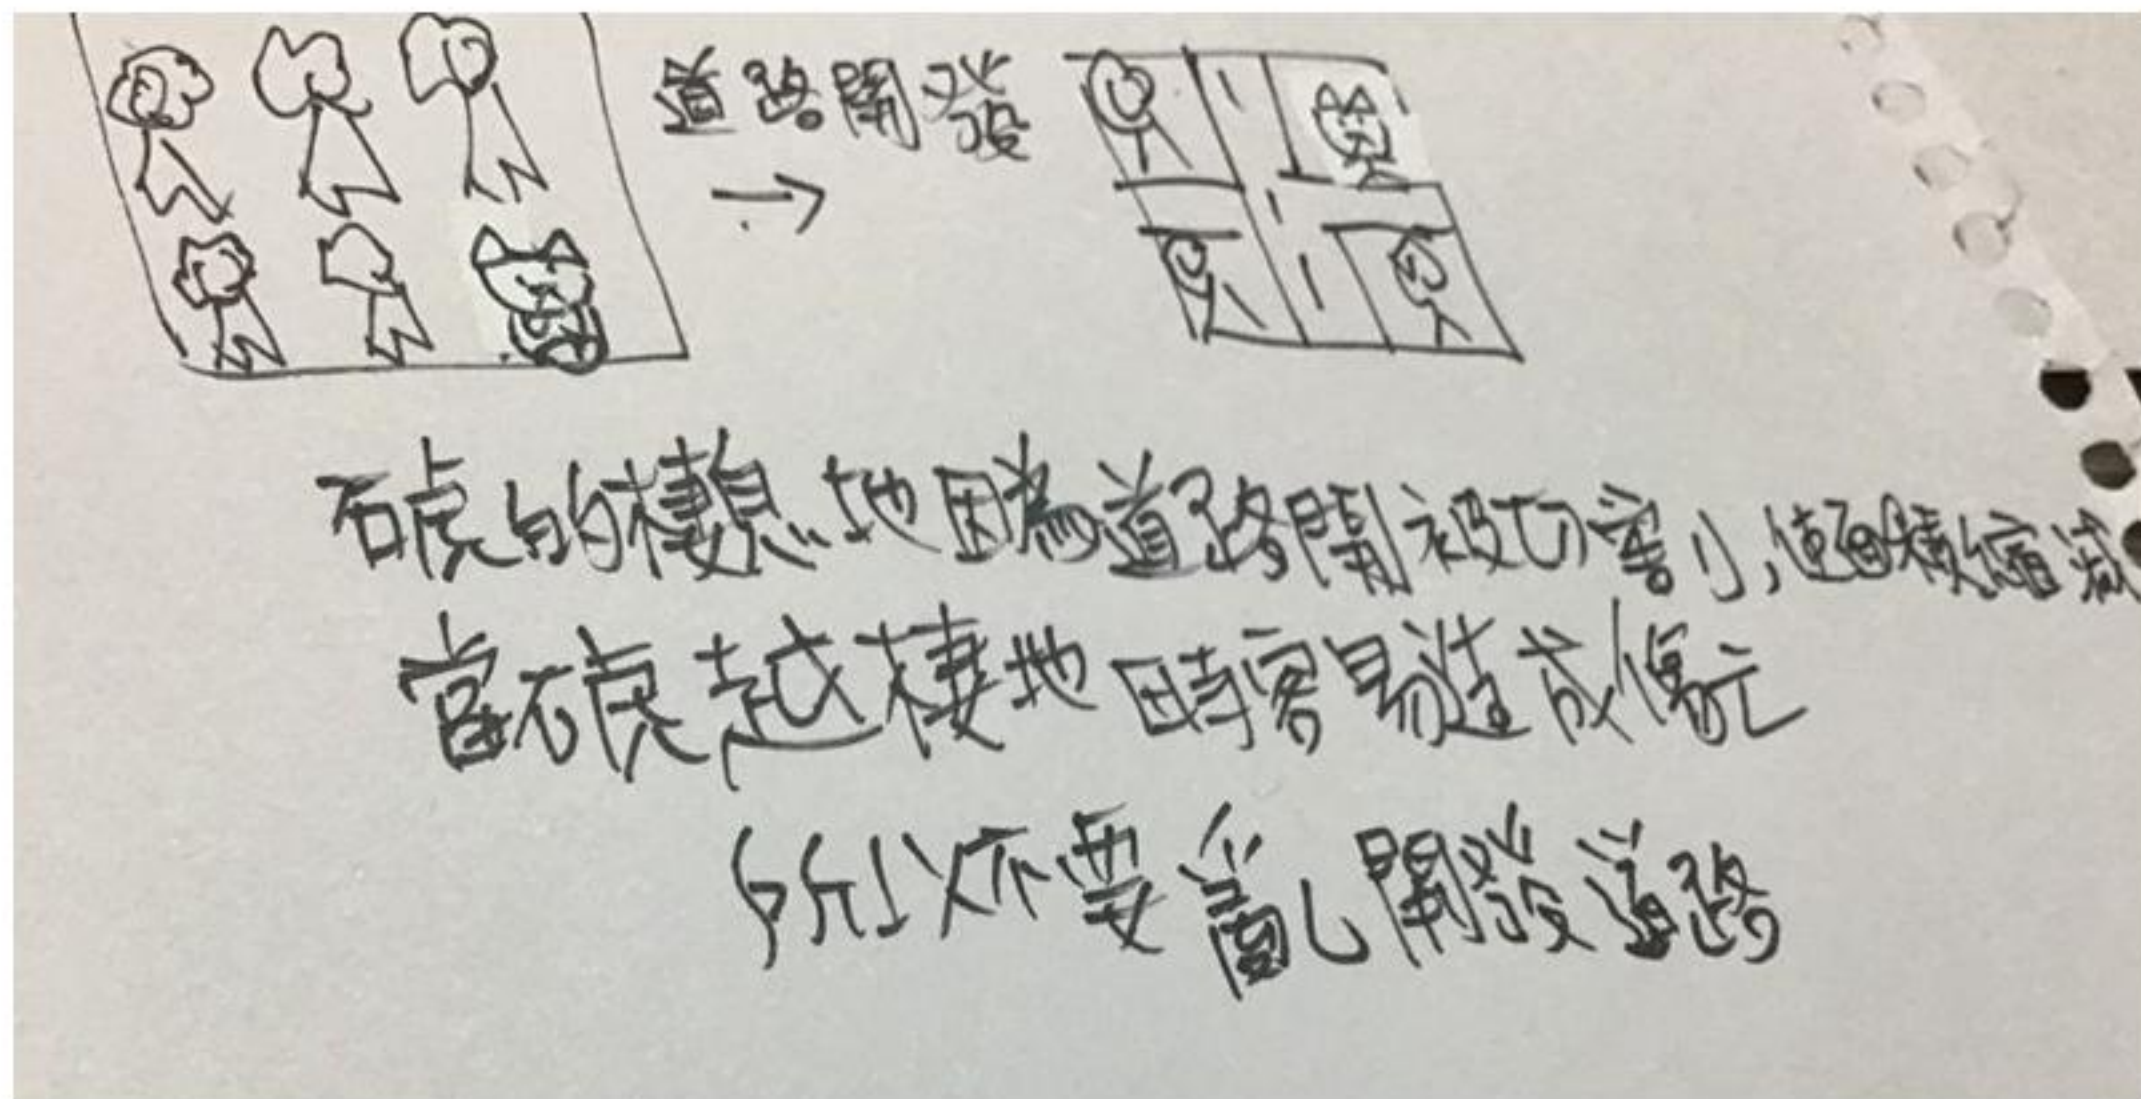 道路開發
石虎的棲息地因為道路開被切割小,使面積縮減
當石虎越棲地時容易造成傷亡
所以不要亂開發道路